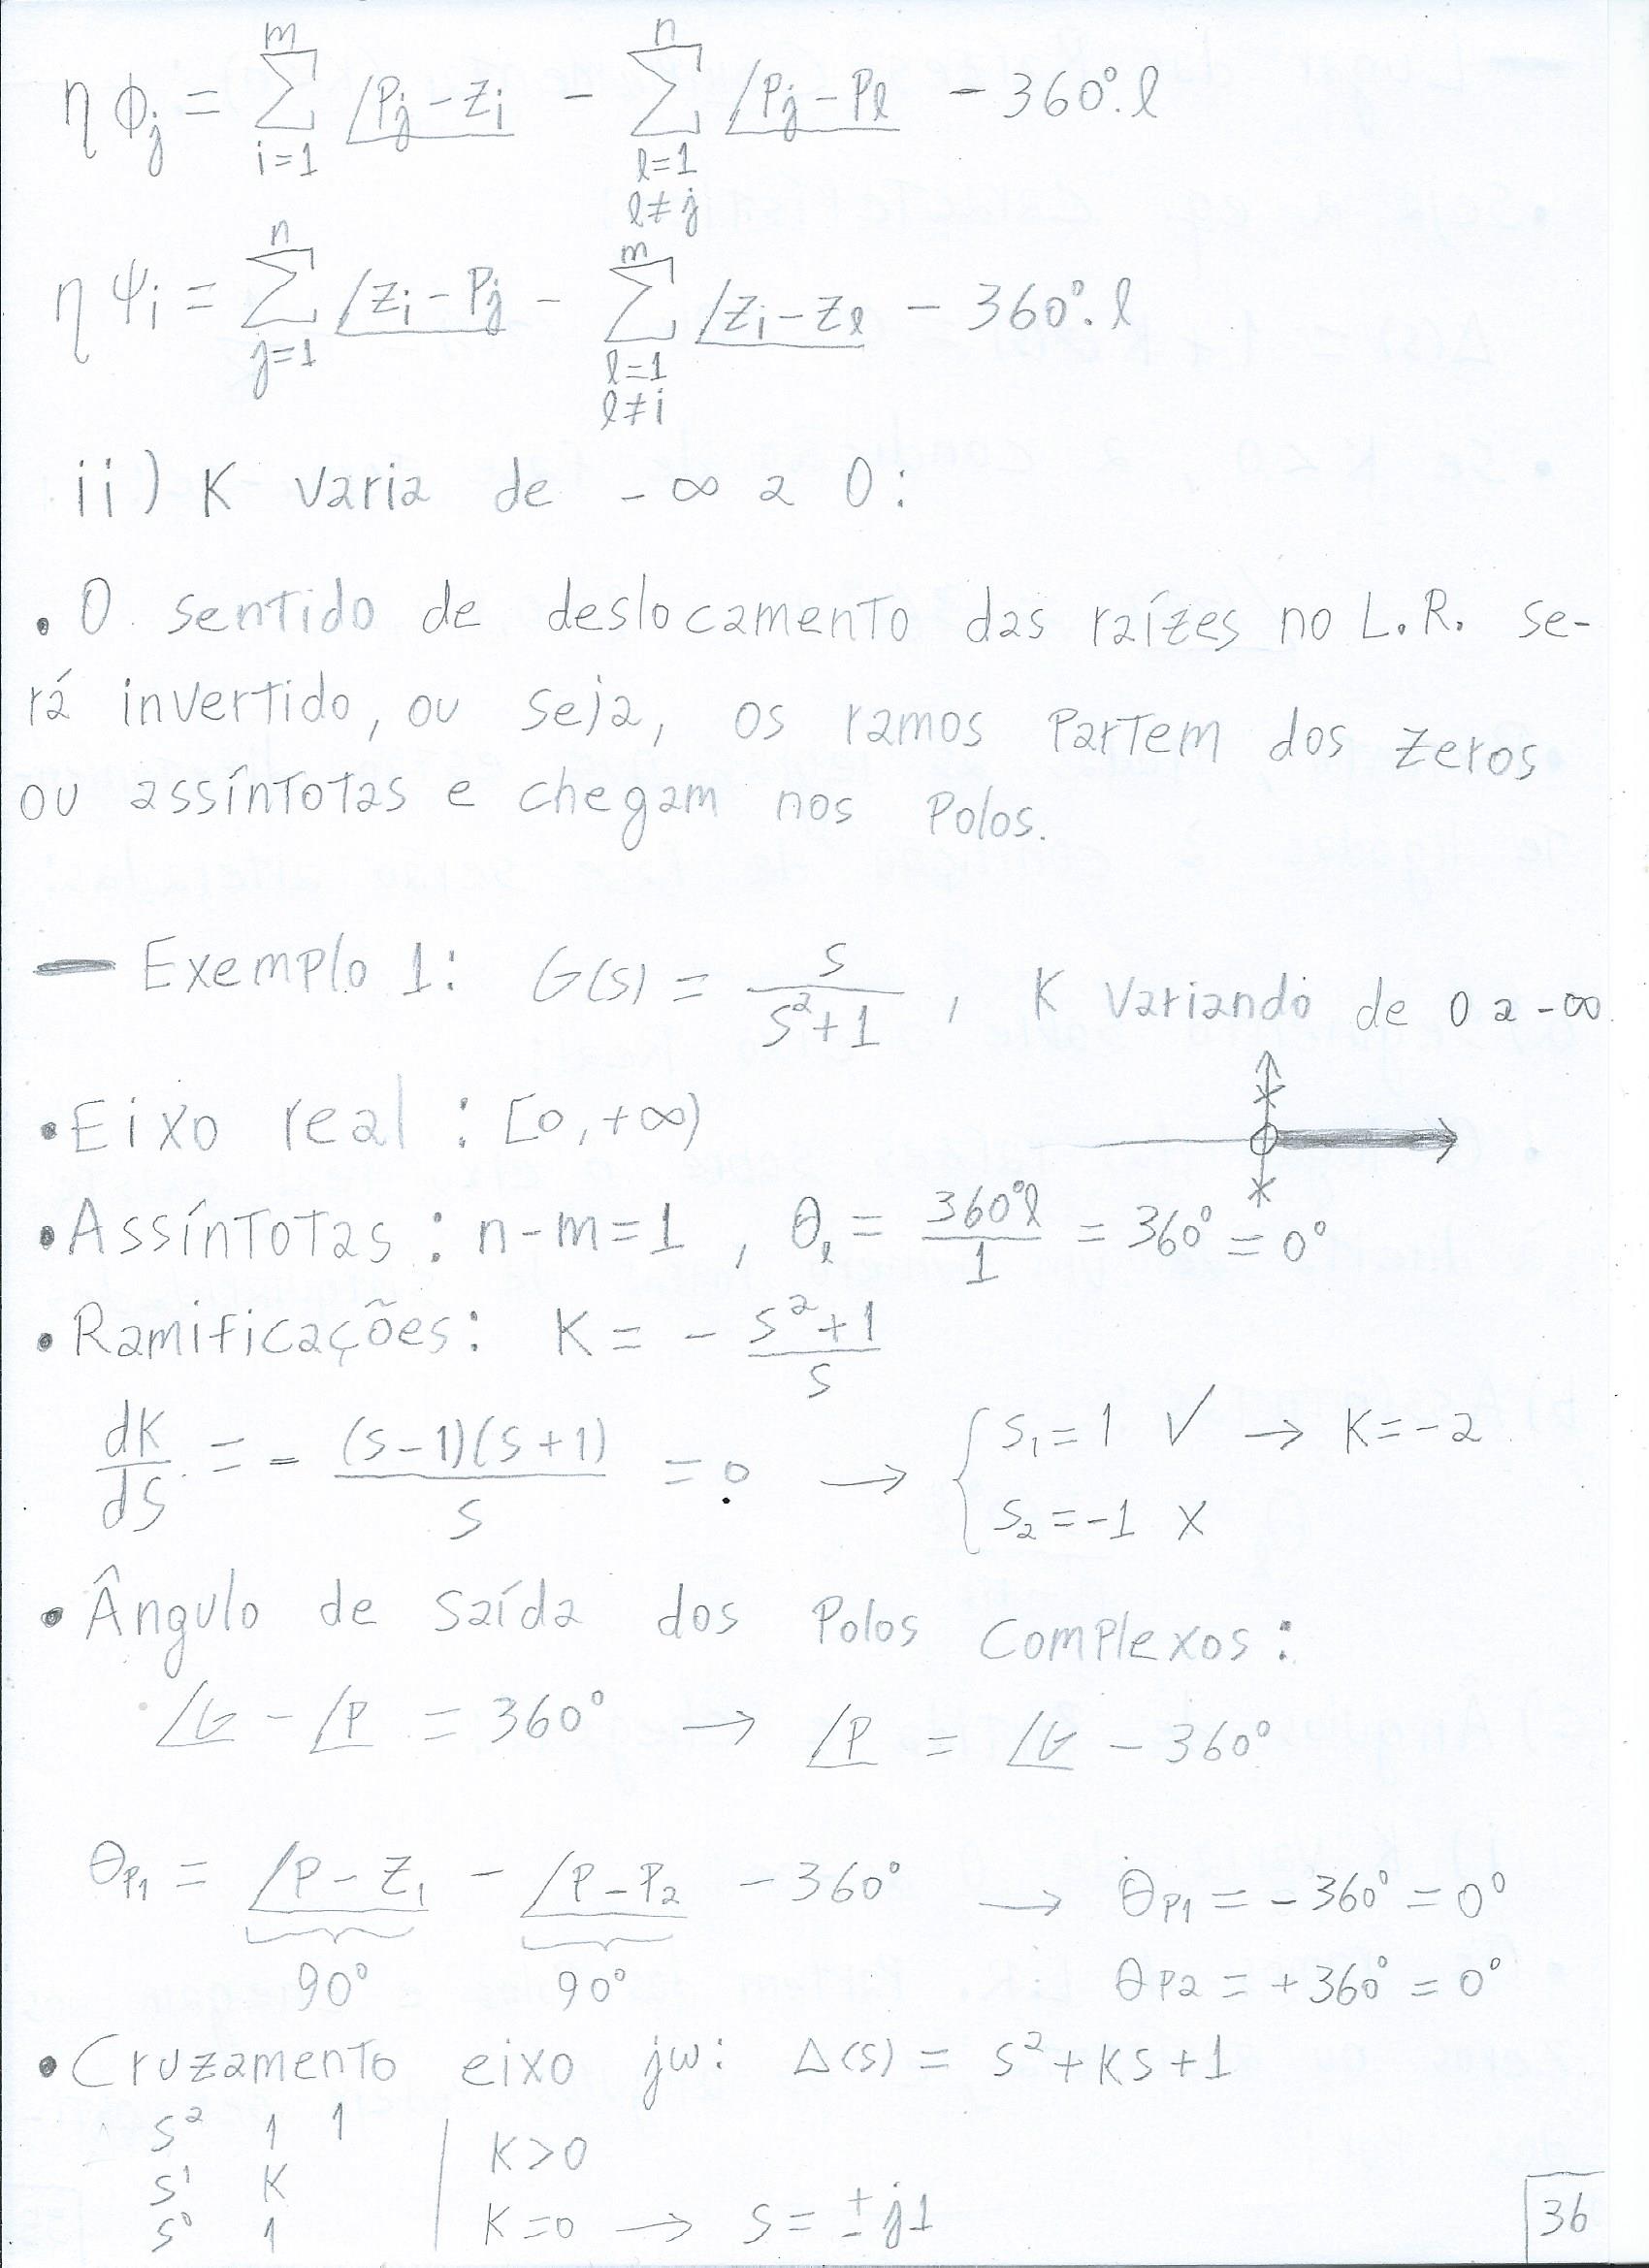 η ϕj = Σ_{i=1}^{m} ∠Pj − Zi − Σ_{l=1, l≠j}^{n} ∠Pj − Pl − 360°.l
η ψi = Σ_{j=1}^{n} ∠Zi − Pj − Σ_{l=1, l≠i}^{m} ∠Zi − Zl − 360°.l
ii) K varia de −∞ a 0:
• O sentido de deslocamento das raízes no L.R. se-
rá invertido, ou seja, os ramos partem dos zeros
ou assíntotas e chegam nos polos.
— Exemplo 1: G(s) = s/(s²+1), K variando de 0 a −∞.
• Eixo real: [0, +∞)
• Assíntotas: n−m=1, θl = 360°l/1 = 360° = 0°
• Ramificações: K = − (s²+1)/s
dK/ds = − (s−1)(s+1)/s = 0 → { s1 = 1 ✓ → K=−2
s2 = −1 X
• Ângulo de saída dos polos complexos:
∠G − ∠P = 360° → ∠P = ∠G − 360°
θP1 = ∠P − Z1 − ∠P − P2 − 360° → θP1 = −360° = 0°
90° 90° θP2 = +360° = 0°
• Cruzamento eixo jω: Δ(s) = s² + Ks + 1
s² 1 1
s¹ K | K>0
s⁰ 1 | K=0 → s = ±j1
36